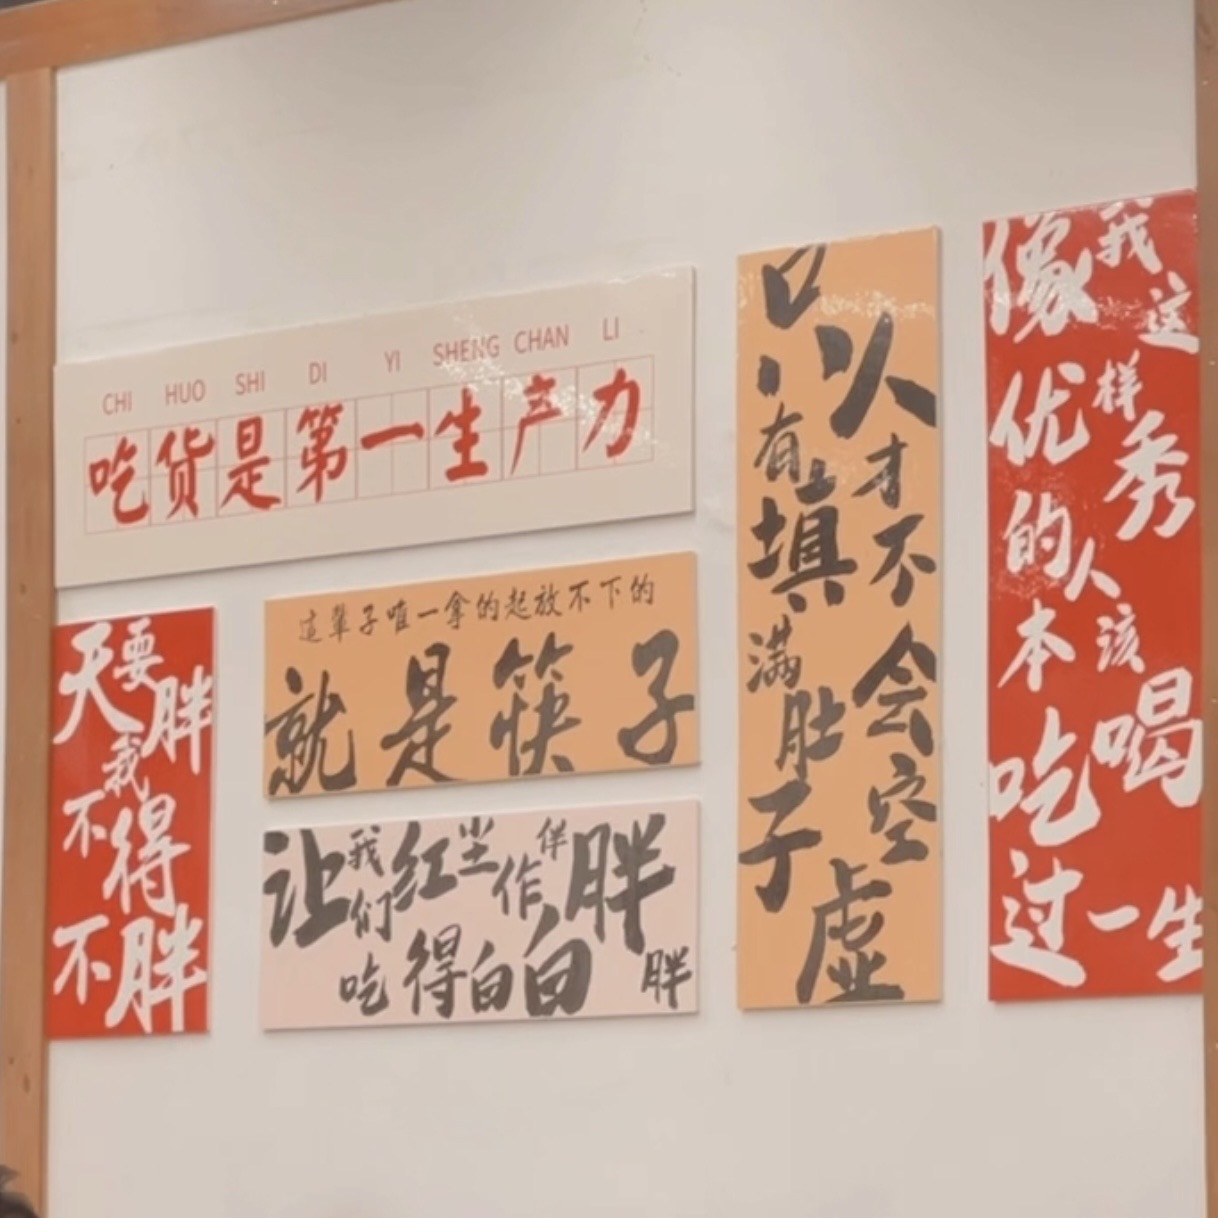 CHI HUO SHI DI YI SHENG CHAN LI
吃货是第一生产力
天要胖
我不得
不胖
這輩子唯一拿的起放不下的
就是筷子
让我们红尘作伴
吃得白白胖胖
只有填满肚子
人才不会空虚
像我这样优秀的人
本该吃喝过一生